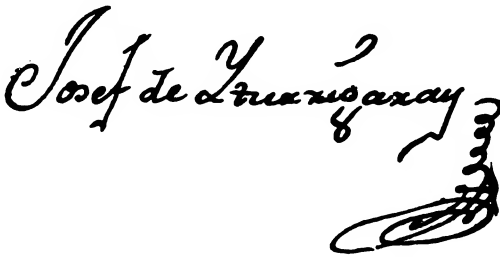 Josef de Yturrigaray